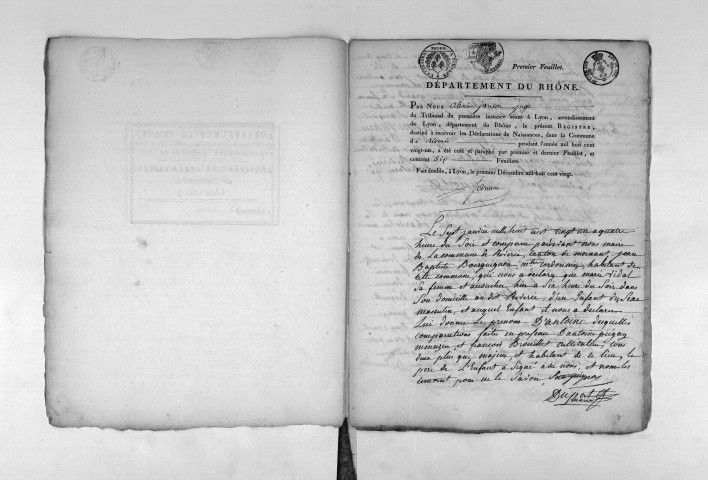 Premier Feuillet.
DÉPARTEMENT DU RHÔNE.
PAR NOUS juge
du Tribunal de première instance séant à Lyon, arrondissement
de Lyon, département du Rhône, le présent REGISTRE,
destiné à recevoir les Déclarations de Naissances, dans la Commune
de Riverie pendant l'année mil huit cent
vingt-un, a été coté et paraphé par premier et dernier Feuillet, et
contient Six Feuillets.
Fait double, à Lyon, le premier Décembre mil-huit cent vingt.
Le Sept janvier mille huit cent vingt un a quatre
heure du Soir est comparu pardevant nous maire
de La commune de Riverie, canton de mornant, jean
Baptiste Bourguignon md cordonnier, habitant de
cette commune, qui nous a declaré que marie Vidal
Sa femme est accouchée hier a Six heure du Soir dans
Son domicille au dit Riverie, d'un Enfant du Sexe
masculin, et auquel Enfant il nous a declaré
lui donner le prenom D'antoine desquelles
comparutions faites en presence D'antoine
menuzier et françois Brouillet cultivateur, tous
deux plus que majeur et habitant de ce lieu, le
pere de L'Enfant a Signé avec nous, et non les
temoins pour ne le Savoir Bourguignon
Dupont
maire